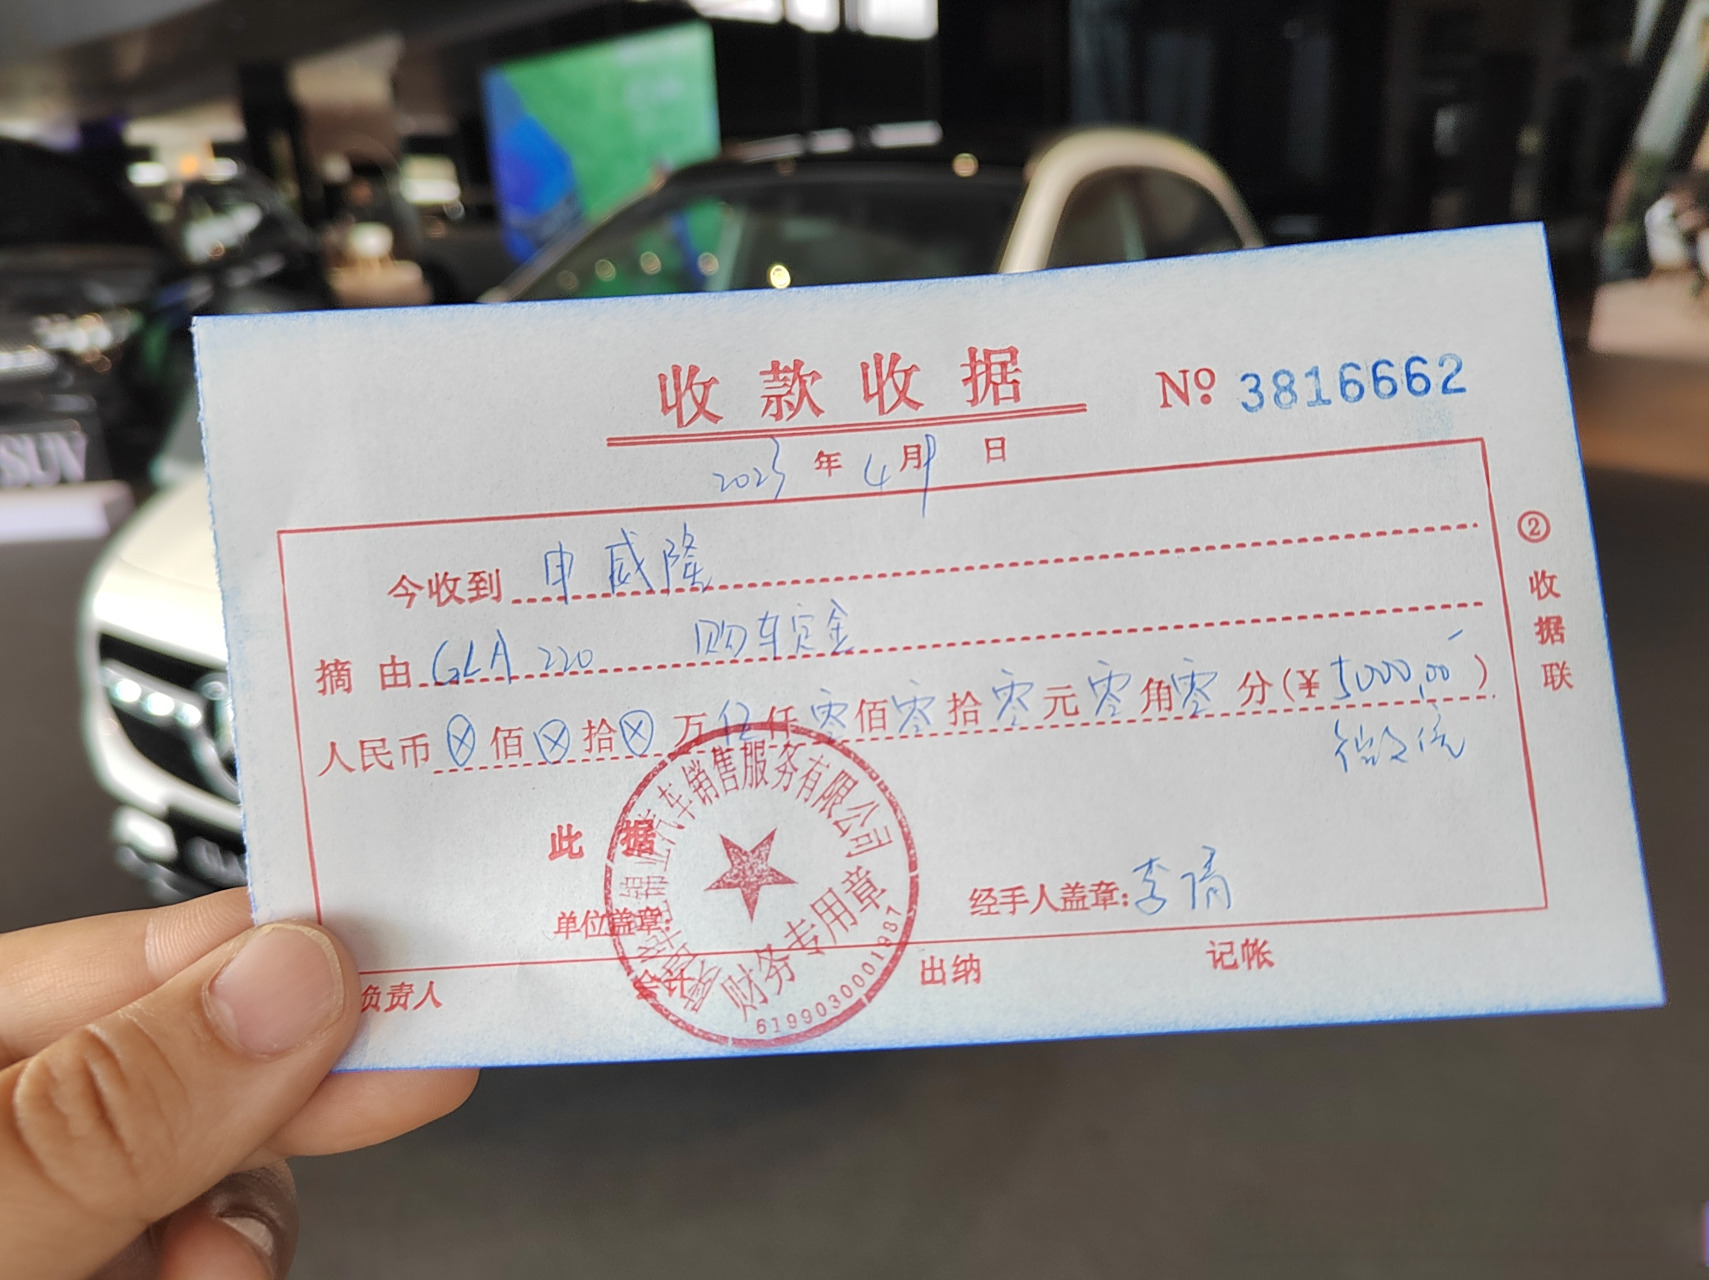 收款收据
№ 3816662
2023年4月9日
今收到 申威隆
摘由 GLA 220 购车定金
人民币 ⊗ 佰 ⊗ 拾 ⊗ 万 伍 仟 零 佰 零 拾 零 元 零 角 零 分(¥ 5000.00)
微信
此据
单位盖章:
经手人盖章: 李倩
负责人 会计 出纳 记帐
②收据联
汽车销售服务有限公司
财务专用章
6199030001987
SUV